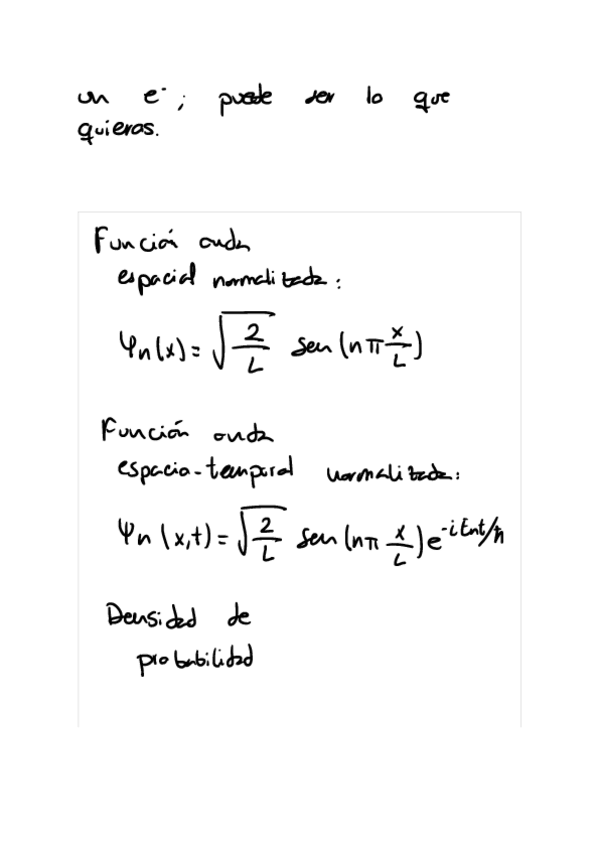 un e⁻; puede ser lo que
quieras.
Función onda
espacial normalizada:
Ψn(x) = √(2/L) sen (nπ x/L)
Función onda
espacio-temporal normalizada:
Ψn (x,t) = √(2/L) sen (nπ x/L) e^(-i Ent/ħ)
Densidad de
probabilidad